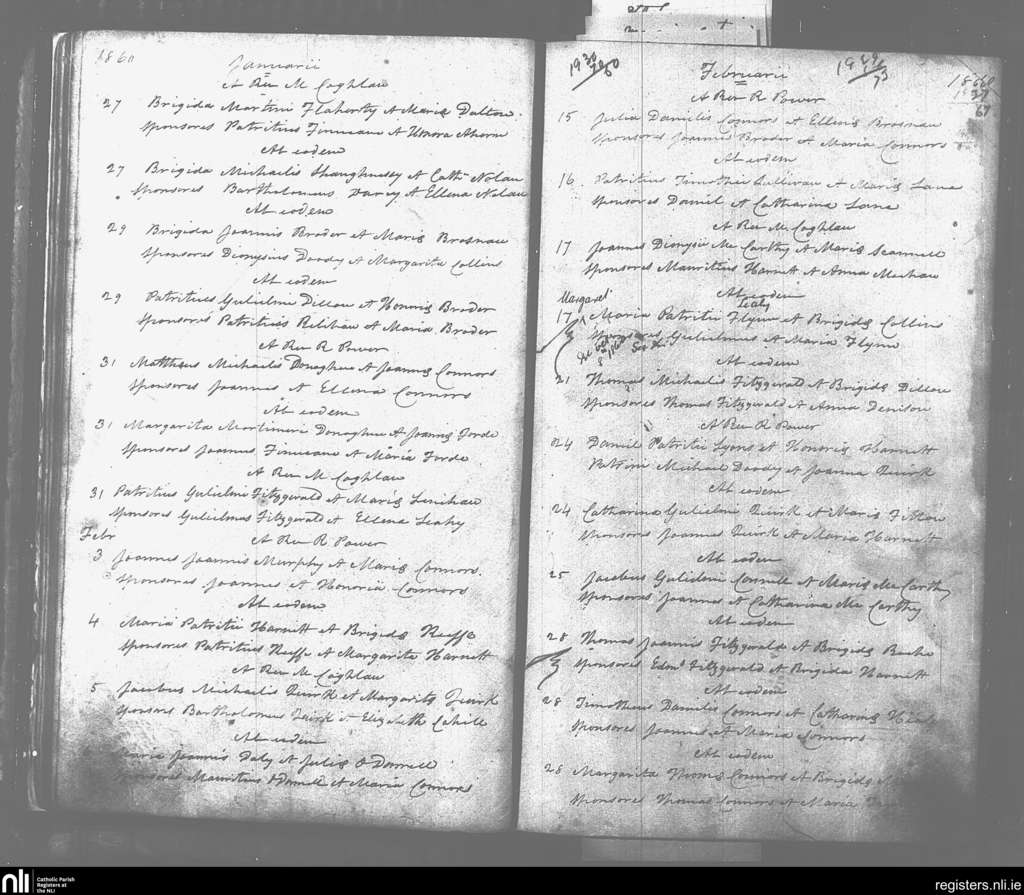 1860
Januarii
A Rev M Coghlan
27 Brigida Martini Flaherty et Mariæ Dalton.
Sponsores Patritius Finucane et Honora Ahern
Ab eodem
27 Brigida Michaelis Shaughnessy et Cath. Nolan
Sponsores Bartholomeus Darcy et Ellena Nolan
Ab eodem
29 Brigida Joannis Broder et Mariæ Brosnan
Sponsores Dionysius Doody et Margarita Collins
Ab eodem
29 Patritius Gulielmi Dillon et Honoriæ Broder
Sponsores Patritius Relihan et Maria Broder
A Rev R Power
31 Mattheus Michaelis Donoghue et Joannæ Connors
Sponsores Joannes et Ellena Connors
Ab eodem
31 Margarita Martineri Donoghue et Joannæ Forde
Sponsores Joannes Finucane et Maria Forde
A Rev M Coghlan
31 Patritius Gulielmi Fitzgerald et Mariæ Linihan
Sponsores Gulielmus Fitzgerald et Ellena Leahy
Febr
A Rev R Power
3 Joannes Joannis Murphy et Mariæ Connors.
Sponsores Joannes et Honoria Connors
Ab eodem
4 Maria Patritii Harnett et Brigidæ Keeffe
Sponsores Patritius Keeffe et Margarita Harnett
A Rev M Coghlan
5 Jacobus Michaelis Quirk et Margaritæ Quirk
Sponsors Bartholomeus Quirk et Elizabeth Cahill
Ab eodem
Maria Joannis Daly et Juliæ O Donnell
Sponsores Mauritius O Donnell et Maria Connors
1930
Februarii
A Rev R Power
15 Julia Danielis Connors et Ellenis Brosnan
Sponsores Joannes Broder et Maria Connors
Ab eodem
16 Patritius Timothei Sullivan et Mariæ Lane
Sponsores Daniel et Catharina Lane
A Rev M Coghlan
17 Joannes Dionysii Mc Carthy et Mariæ Scannell
Sponsores Mauritius Harnett et Anna Meehan
Ab eodem
Margaret
Leahy
17 Maria Patritii Flynn et Brigidæ Collins
Sponsores Gulielmus et Maria Flynn
Ab eodem
21 Thomas Michaelis Fitzgerald et Brigidæ Dillon
Sponsores Thomas Fitzgerald et Anna Denison
A Rev R Power
24 Daniel Patritii Lyons et Honoriæ Harnett
Patrini Michael Doody et Joanna Quirk
Ab eodem
24 Catharina Gulielmi Quirk et Mariæ
Sponsores Joannes Quirk et Maria Harnett
Ab eodem
25 Jacobus Gulielmi Connell et Mariæ Mc Carthy
Sponsores Joannes et Catharina Mc Carthy
Ab eodem
28 Thomas Joannis Fitzgerald et Brigidæ
Sponsores Edmd Fitzgerald et Brigida Harnett
Ab eodem
28 Timotheus Danielis Connors et Catharinæ
Sponsores Joannes et Maria Connors
Ab eodem
28 Margarita Thomæ Connors et Brigidæ
Sponsores Thomas Connors et Maria
nli Catholic Parish
Registers at
the NLI
registers.nli.ie